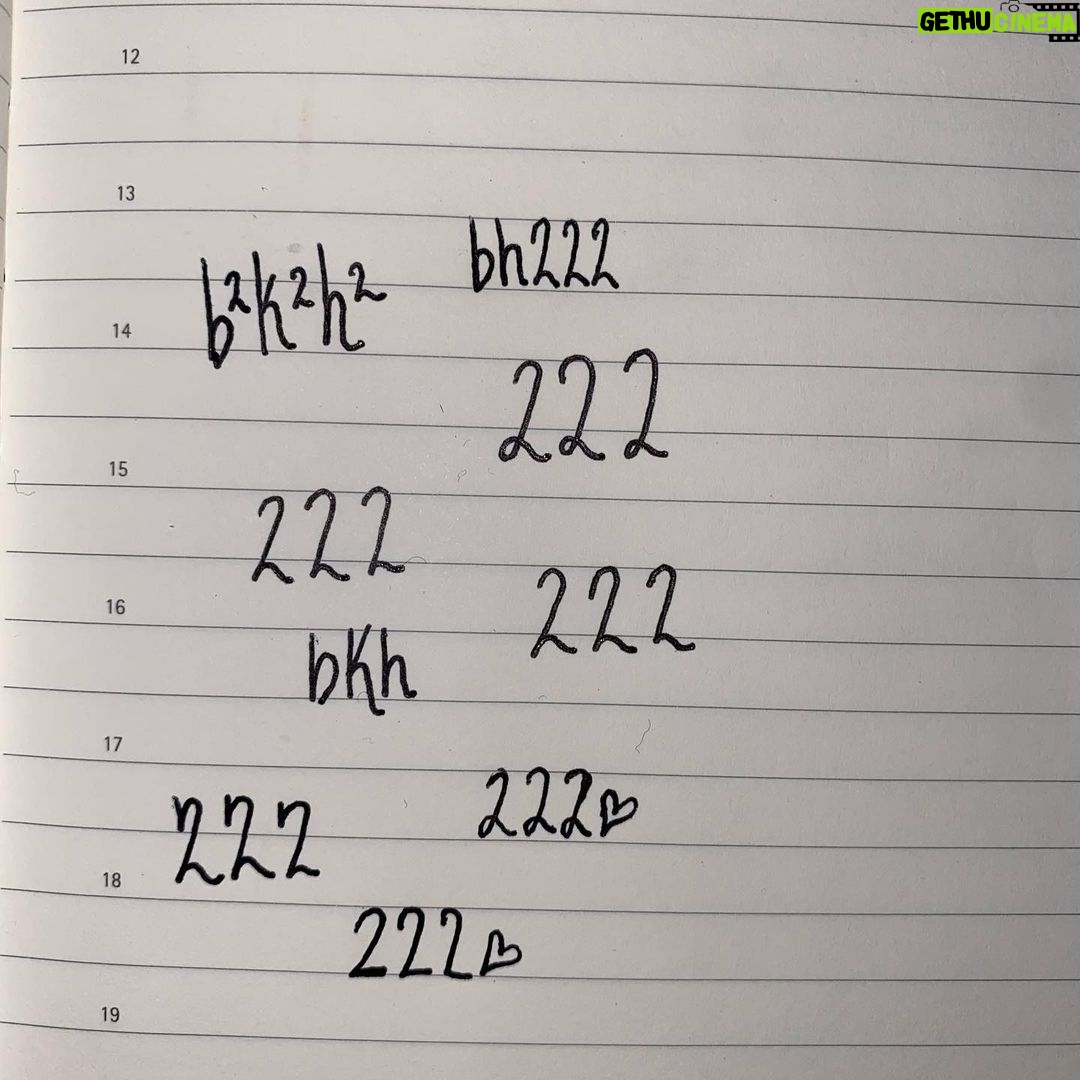 GETHU CINEMA
12
13
bh222
b²k²h²
14
222
15
222
222
16
bkh
17
222♡
222
18
222♡
19